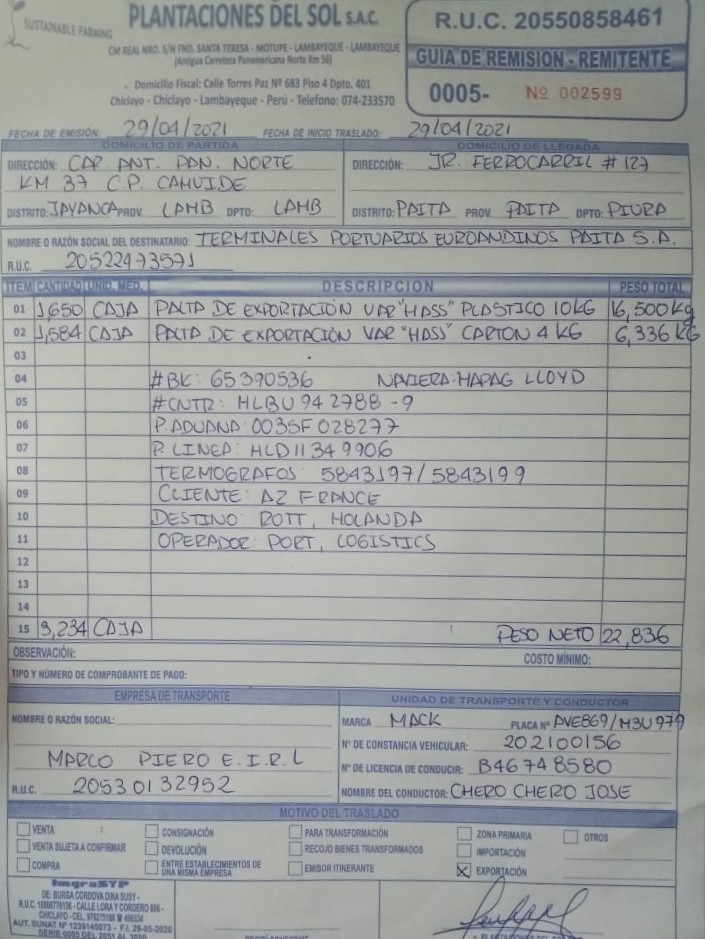 SUSTAINABLE FARMING
PLANTACIONES DEL SOL S.A.C.
CM REAL NRO. S/N FND. SANTA TERESA - MOTUPE - LAMBAYEQUE - LAMBAYEQUE
(Antigua Carretera Panamericana Norte Km 56)
Domicilio Fiscal: Calle Torres Paz Nº 683 Piso 4 Dpto. 401
Chiclayo - Chiclayo - Lambayeque - Perú - Telefono: 074-233570
R.U.C. 20550858461
GUIA DE REMISION - REMITENTE
0005- Nº 002599
FECHA DE EMISIÓN: 29/04/2021 FECHA DE INICIO TRASLADO: 29/04/2021
DOMICILIO DE PARTIDA
DIRECCIÓN: CAP. ANT. PAN. NORTE
KM 37 C.P. CAHUIDE
DISTRITO: JAYANCA PROV. LAMB DPTO: LAMB
DOMICILIO DE LLEGADA
DIRECCIÓN: JR. FERROCARRIL #127
DISTRITO: PAITA PROV PAITA DPTO: PIURA
NOMBRE O RAZÓN SOCIAL DEL DESTINATARIO: TERMINALES PORTUARIOS EUROANDINOS PAITA S.A.
R.U.C. 20522473571
ITEM CANTIDAD UNID. MED. DESCRIPCION PESO TOTAL
01 1,650 CAJA PALTA DE EXPORTACIÓN VAR "HASS" PLASTICO 10KG 16,500 Kg
02 1,584 CAJA PALTA DE EXPORTACIÓN VAR "HASS" CARTON 4 KG 6,336 KG
03
04 #BK: 65390536 NAVIERA: HAPAG LLOYD
05 #CNTR: HLBU 942788-9
06 P. ADUANA: 0035F028277
07 P. LINEA: HLD1134 9906
08 TERMOGRAFOS: 5843197/5843199
09 CLIENTE: AZ FRANCE
10 DESTINO: ROTT, HOLANDA
11 OPERADOR: PORT, LOGISTICS
12
13
14
15 3,234 CAJA PESO NETO 22,836
OBSERVACIÓN: COSTO MÍNIMO:
TIPO Y NÚMERO DE COMPROBANTE DE PAGO:
EMPRESA DE TRANSPORTE
NOMBRE O RAZÓN SOCIAL:
MARCO PIERO E.I.R.L
R.U.C. 20530132952
UNIDAD DE TRANSPORTE Y CONDUCTOR
MARCA MACK PLACA Nº AVE869/M3U979
Nº DE CONSTANCIA VEHICULAR: 202100156
Nº DE LICENCIA DE CONDUCIR: B46748580
NOMBRE DEL CONDUCTOR: CHERO CHERO JOSE
MOTIVO DEL TRASLADO
VENTA CONSIGNACIÓN PARA TRANSFORMACIÓN ZONA PRIMARIA OTROS
VENTA SUJETA A CONFIRMAR DEVOLUCIÓN RECOJO BIENES TRANSFORMADOS IMPORTACIÓN
COMPRA ENTRE ESTABLECIMIENTOS DE UNA MISMA EMPRESA EMISOR ITINERANTE EXPORTACIÓN
ImgraSYP
DE: BURGA CORDOVA DINA SUSY -
CALLE LORA Y CORDERO
CHICLAYO - CEL.
AUT. SUNAT Nº 1239145073 - F.I. 29-05-2020
SERIE 0005 DEL 2051 AL 3050